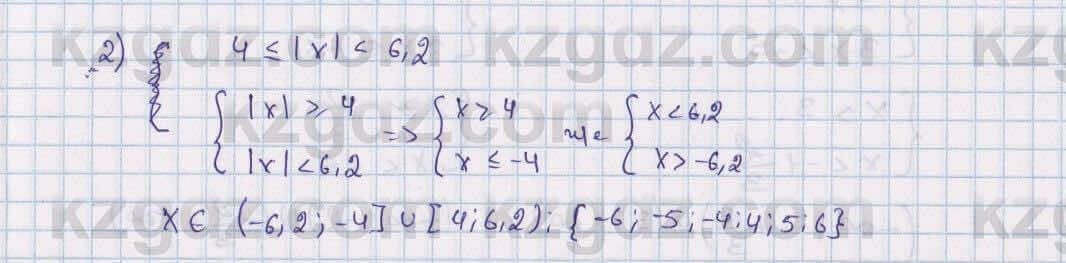 2) 4 ≤ |x| < 6,2
{ |x| ≥ 4 => { x ≥ 4 және { x < 6,2
|x| < 6,2 x ≤ -4 x > -6,2
x ∈ (-6,2; -4] ∪ [4; 6,2); {-6; -5; -4; 4; 5; 6}
kzgdz.com